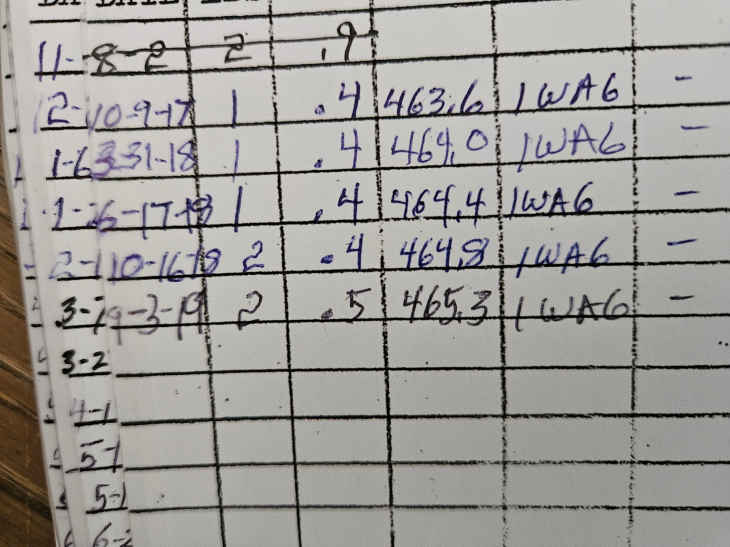 11-8-2 2 .9
10-9-17 1 .4 463.6 1WA6 -
3-31-18 1 .4 464.0 1WA6 -
6-17-18 1 .4 464.4 1WA6 -
10-16-18 2 .4 464.8 1WA6 -
9-3-19 2 .5 465.3 1WA6 -
3-2
4-1
5-1
5-1
6-2